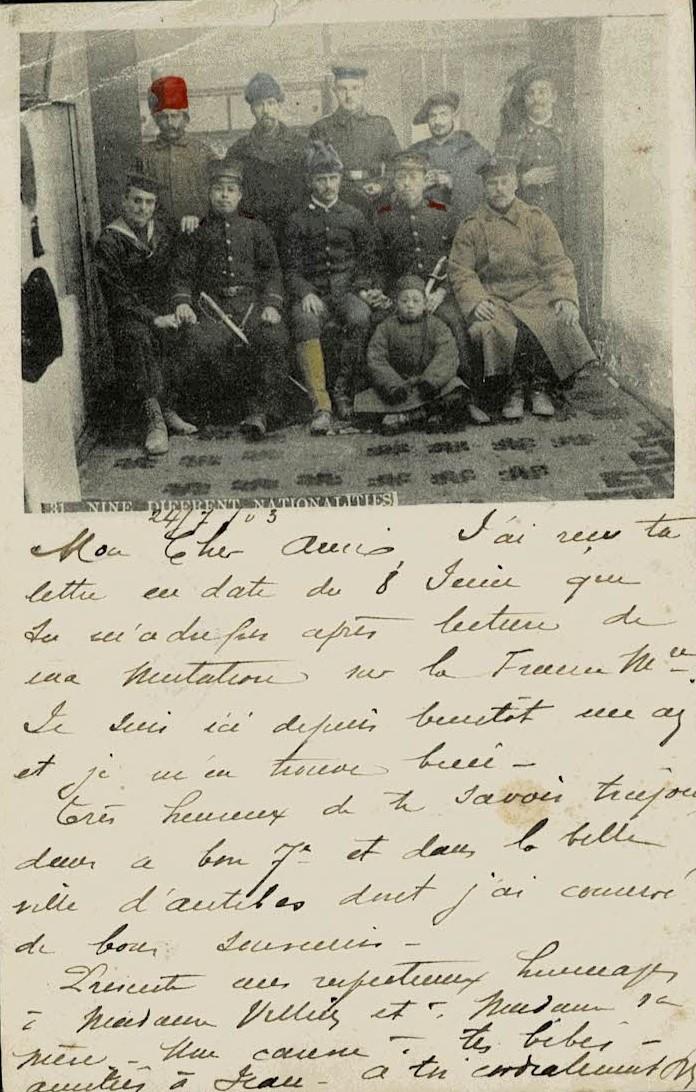 31. NINE DIFERENT NATIONALITIES
24/7/03
Mon Cher Ami, J'ai reçu ta
lettre en date du 8 Juin que
tu m'adresses après lecture de
ma mutation sur la France Mre.
Je suis ici depuis bientôt un an
et je m'en trouve bien -
Très heureux de te savoir toujours
dans ce bon 7e et dans la belle
ville d'antibes dont j'ai conservé
de bons souvenirs -
Présente mes respectueux hommages
à Madame et à Madame ta
mère - Une caresse à tes bébés -
amitiés à Jean - à toi cordialement